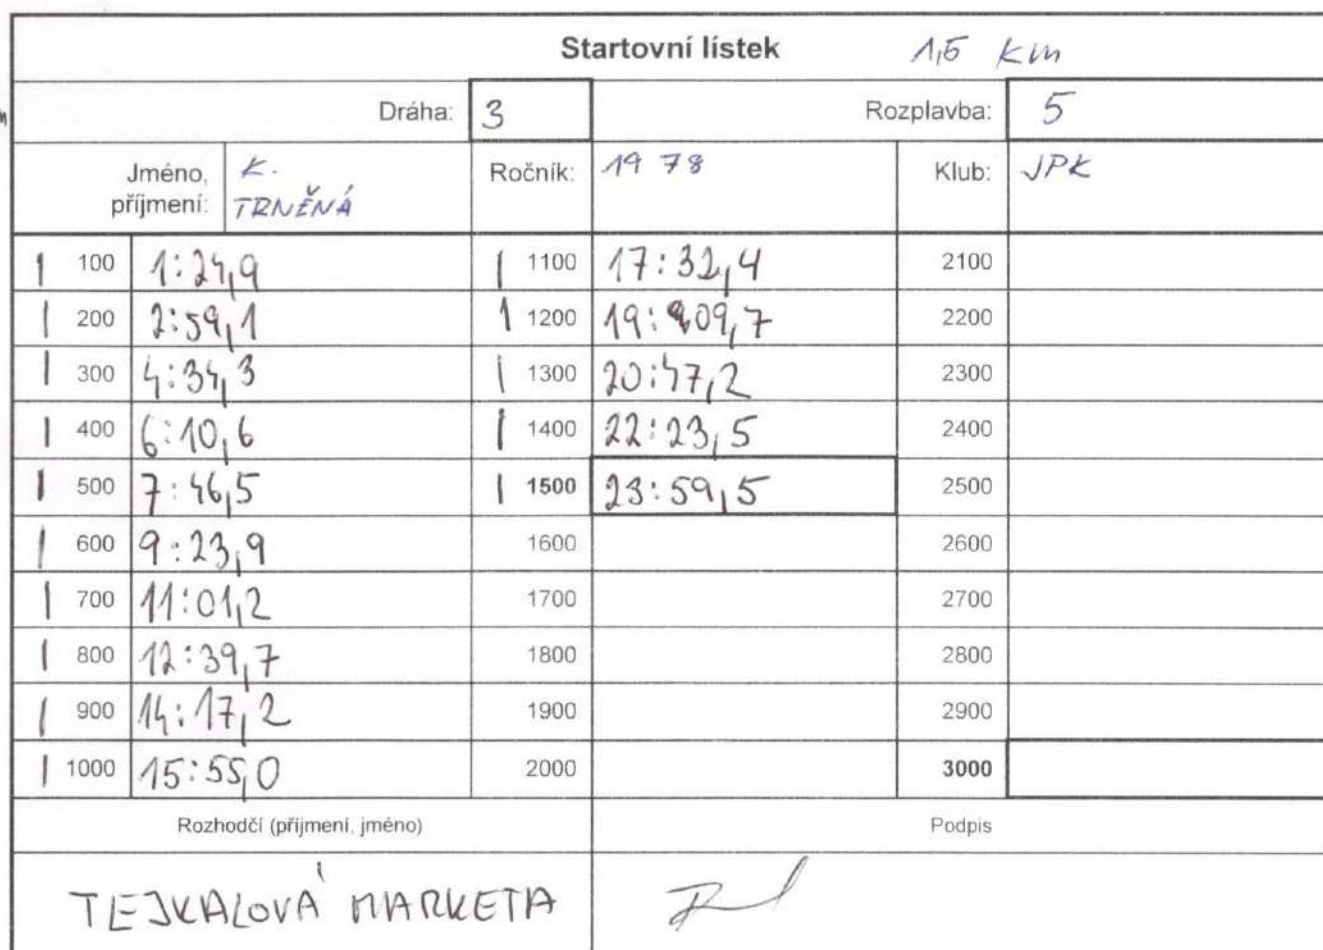 Startovní lístek 1,5 km
Dráha: 3 Rozplavba: 5
Jméno, příjmení: K. TRNĚNÁ Ročník: 1978 Klub: JPK
| 100 1:24,9 | 1100 17:32,4 2100
| 200 2:59,1 | 1200 19:09,7 2200
| 300 4:34,3 | 1300 20:47,2 2300
| 400 6:10,6 | 1400 22:23,5 2400
| 500 7:46,5 | 1500 23:59,5 2500
| 600 9:23,9 1600 2600
| 700 11:01,2 1700 2700
| 800 12:39,7 1800 2800
| 900 14:17,2 1900 2900
| 1000 15:55,0 2000 3000
Rozhodčí (příjmení, jméno) Podpis
TEJKALOVÁ MARKETA